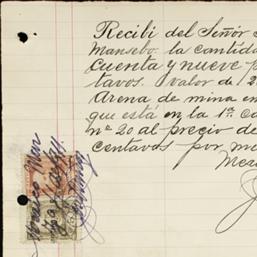 Recibí del Señor
Mansebo. la cantida
cuenta y nueve p
tavos. valor de 2
Arena de mina en
que está en la 1ª. ca
nº 20 al precio de
centavos por me
Mexi